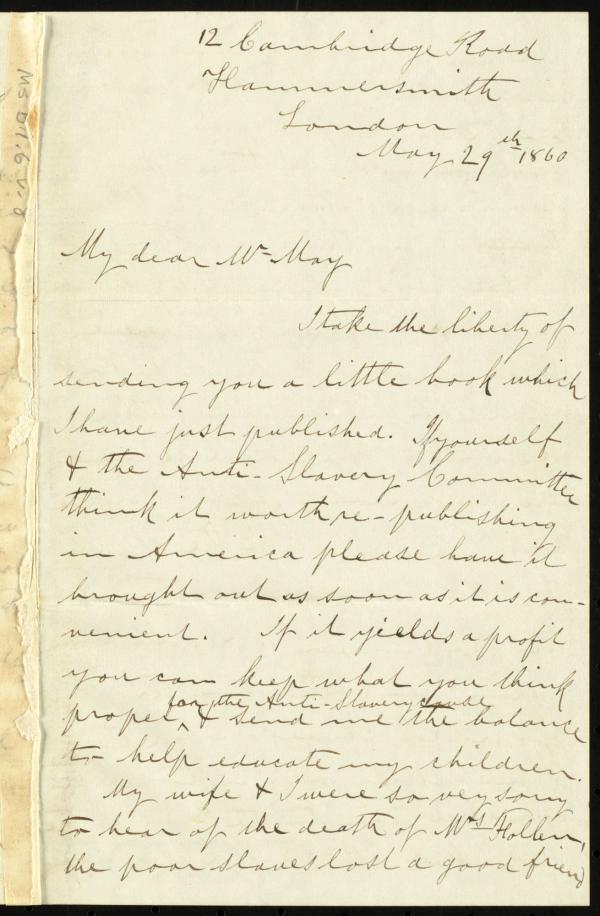 12 Cambridge Road
Hammersmith
London
May 29th 1860
My dear Mr May
I take the liberty of
sending you a little book which
I have just published. If yourself
& the Anti-Slavery Committee
think it worth re-publishing
in America please have it
brought out as soon as it is con-
venient. If it yields a profit
you can keep what you think
for the Anti-Slavery cause
proper ^ & send me the balance
to help educate my children.
My wife & I were so very sorry
to hear of the death of Mrs Follen,
the poor slaves lost a good friend